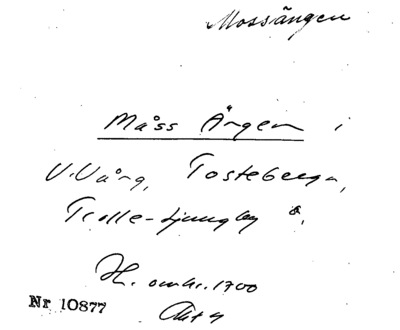 Mossängen
Måss Ängen i
V. Vång, Tosteberga,
Trolle-Ljungby s.
H. omkr. 1700
Nr 10877
Akt 4